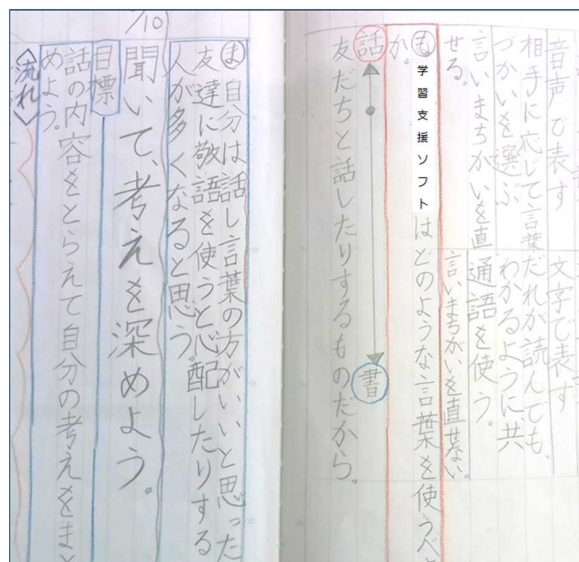 音声で表す
相手に応じて言葉
づかいを選ぶ
言いまちがいを直
せる。
文字で表す
だれが読んでも、
わかるように共
通語を使う。
言いまちがいを直せない。
も 学習支援ソフトはどのような言葉を使うべ
か。
話 書
友だちと話したりするものだから。
ま 自分は話し言葉の方がいいと思った
友達に敬語を使うと心配したりする
人が多くなると思う。
/10
聞いて、考えを深めよう。
目標
話の内容をとらえて自分の考えをまと
めよう。
〈流れ〉